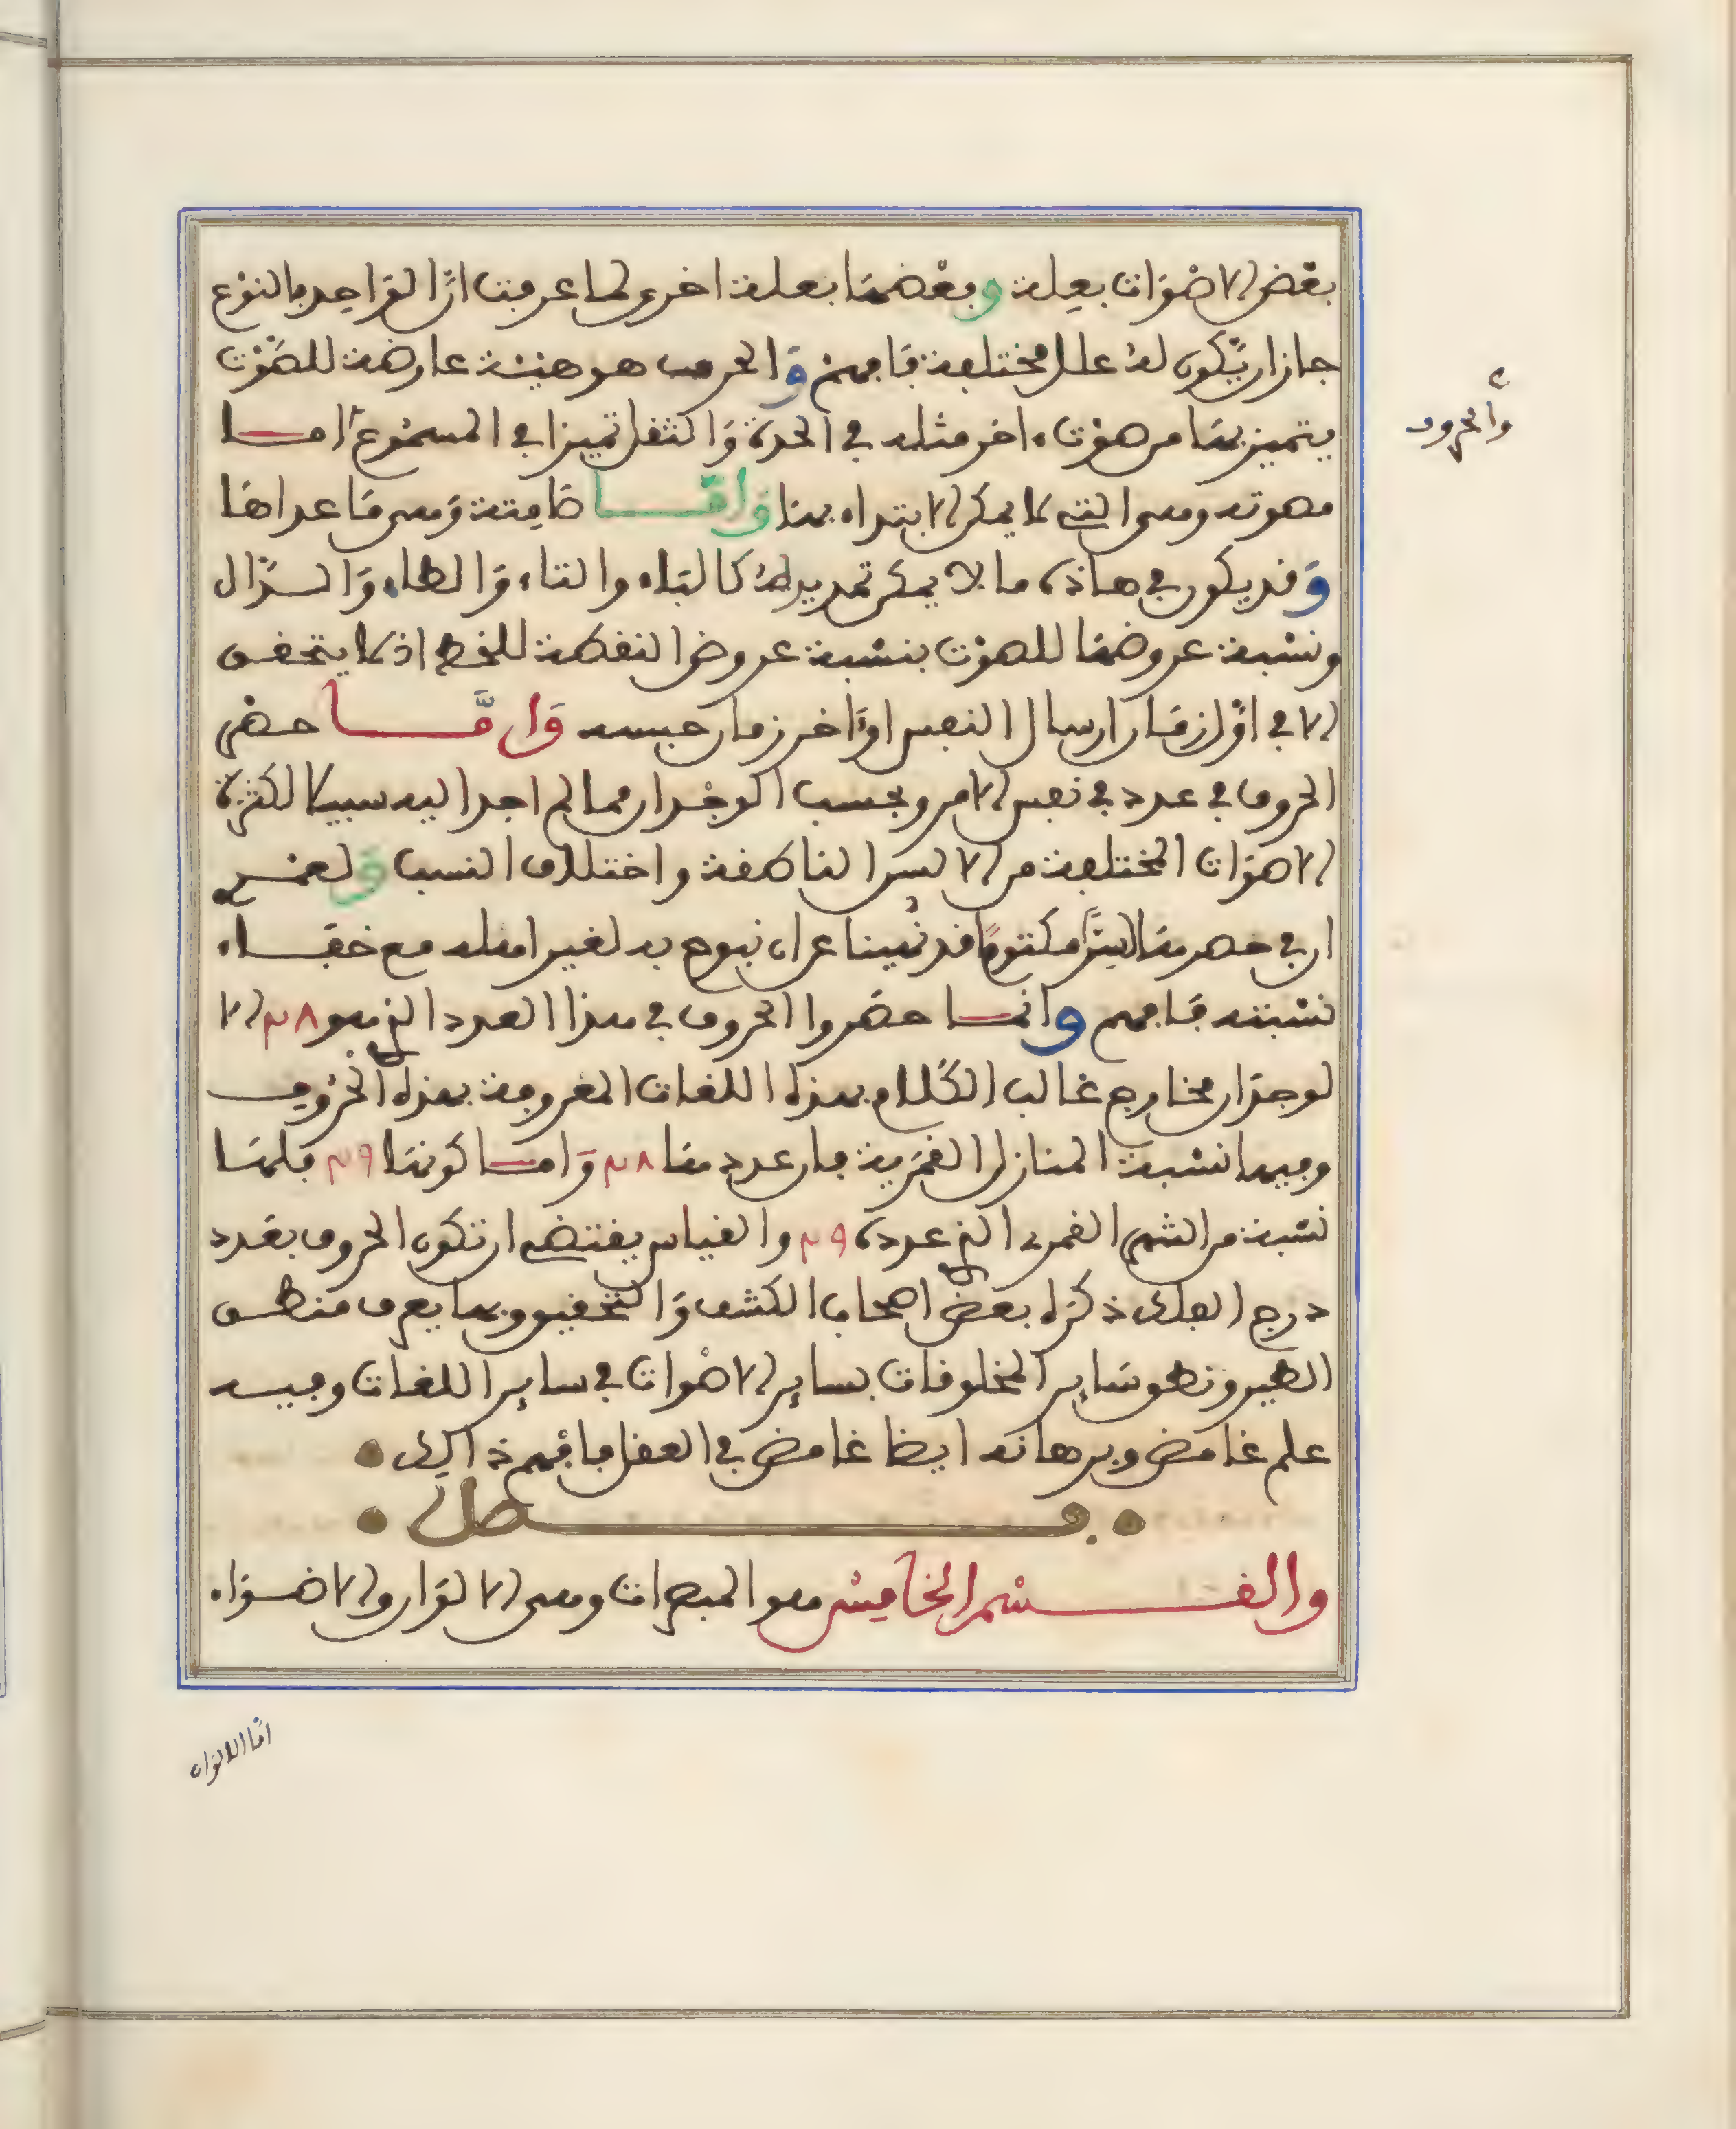 بعض الاصوات بعلة وبعضها بعلة اخرى لما عرفت ان الواحد بالنوع
جاز ان يكون له علل مختلفة فافهم والحرف هو هيئة عارضة للصوت
يتميز بها من صوت ءاخر مثله في الحدة والثقل تميزا في المسموع اما
مصوته وهي التي لا يمكن الابتداء بها واما صامتة وهي ما عداها
وقد يكون في هاذه ما لا يمكن تمديده كالباء والتاء والطاء والدال
ونسبة عروضها للصوت بنسبة عروض النقطة للخط اذ لا يتحقق
الا في اول زمان ارسال النفس او ءاخر زمان حبسه واما حصر
الحروف في عدد في نفس الامر وبحسب الوجدان فما لم اجد اليه سبيلا لكثرة
الاصوات المختلفة من الالسن الناطقة واختلاف النسب ولعمري
ان في حصرها لسرا مكتوما قد نهينا عن ان نبوح به لغير اهله مع خفاء
نسبته فافهم وانما حصروا الحروف في هذا العدد الذي هو ٢٨ الا
لوجدان مخارج غالب الكلام بهذه اللغات المعروفة بهذه الحروف
وفيها نسبة المنازل القمرية فان عددها ٢٨ واما كونها ٢٩ فلها
نسبة من الشهر القمري الذي عدده ٢٩ والقياس يقتضي ان تكون الحروف بعدد
درج الفلك ذكره بعض اصحاب الكشف والتحقيق وبها يعرف منطق
الطير ونطق ساير المخلوقات بساير الاصوات في ساير اللغات وفيه
علم غامض وبرهانه ايضا غامض في العقل فافهم ذالك
فصل
والقسم الخامس هو المبصرات وهي الالوان والاضواء
والحروف
اما الالوان